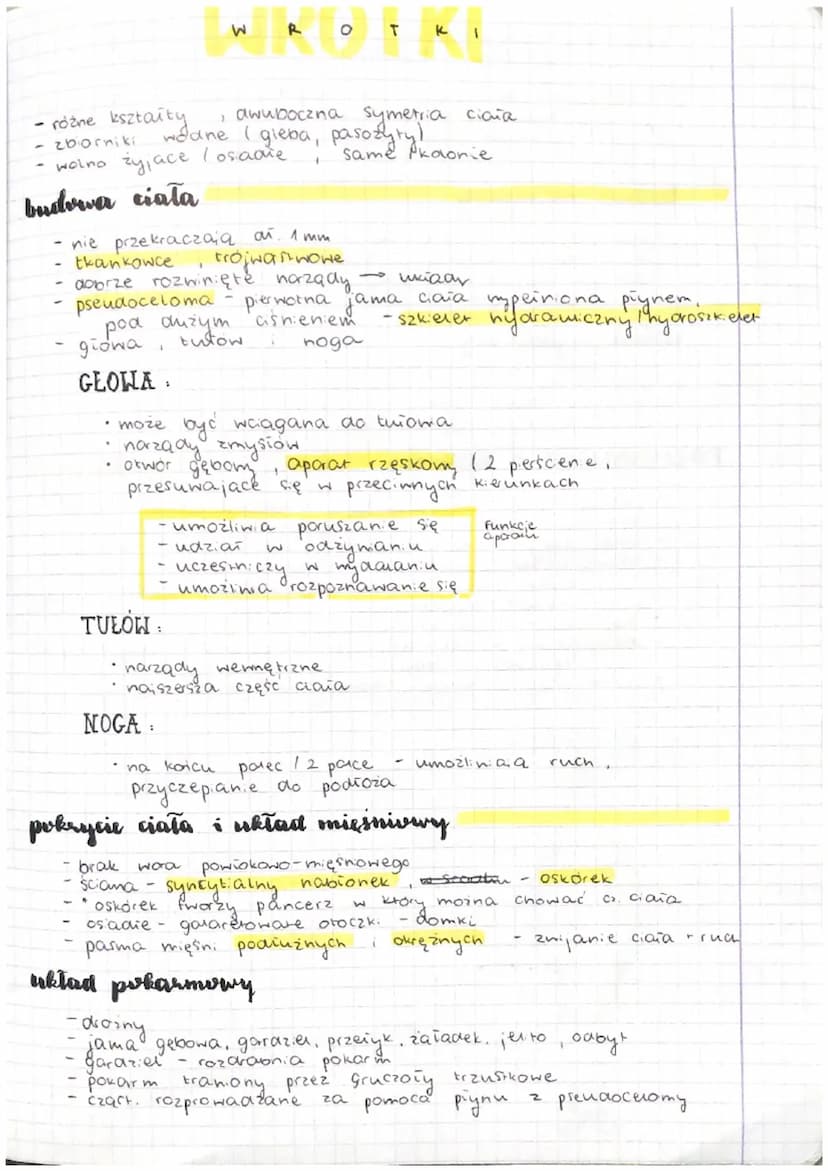 WROTKI
- różne kształty, dwuboczna symetria ciała
- zbiorniki wodne (gleba, pasożyty)
- wolno żyjące / osiadłe, same / kolonie
budowa ciała
- nie przekraczają dł. 1 mm
- tkankowce, trójwarstwowe
- dobrze rozwinięte narządy → układy
- pseudoceloma - pierwotna jama ciała wypełniona płynem,
pod dużym ciśnieniem - szkielet hydrauliczny / hydroszkielet
- głowa, tułów i noga
GŁOWA:
• może być wciągana do tułowia
• narządy zmysłów
• otwór gębowy, aparat rzęskowy (2 pierścienie,
przesuwające się w przeciwnych kierunkach
- umożliwia poruszanie się
- udział w odżywianiu
- uczestniczy w wydalaniu
- umożliwia rozpoznawanie się
funkcje
aparatu
TUŁÓW:
• narządy wewnętrzne
• najszersza część ciała
NOGA:
• na końcu palec / 2 palce - umożliwiają ruch,
przyczepianie do podłoża
pokrycie ciała i układ mięśniowy
- brak wora powłokowo-mięśnowego
- ściana - syncytialny nabłonek, - oskórek
- • oskórek tworzy pancerz w który można chować cz. ciała
- osiadłe - galaretowate otoczki - domki
- pasma mięśni podłużnych i okrężnych - zwijanie ciała + ruch
układ pokarmowy
- drożny
- jama gębowa, gardziel, przełyk, żołądek, jelito, odbyt
- gardziel - rozdrabnia pokarm
- pokarm trawiony przez gruczoły trzustkowe
- cząst. rozprowadzane za pomocą płynu z pseudocelomy